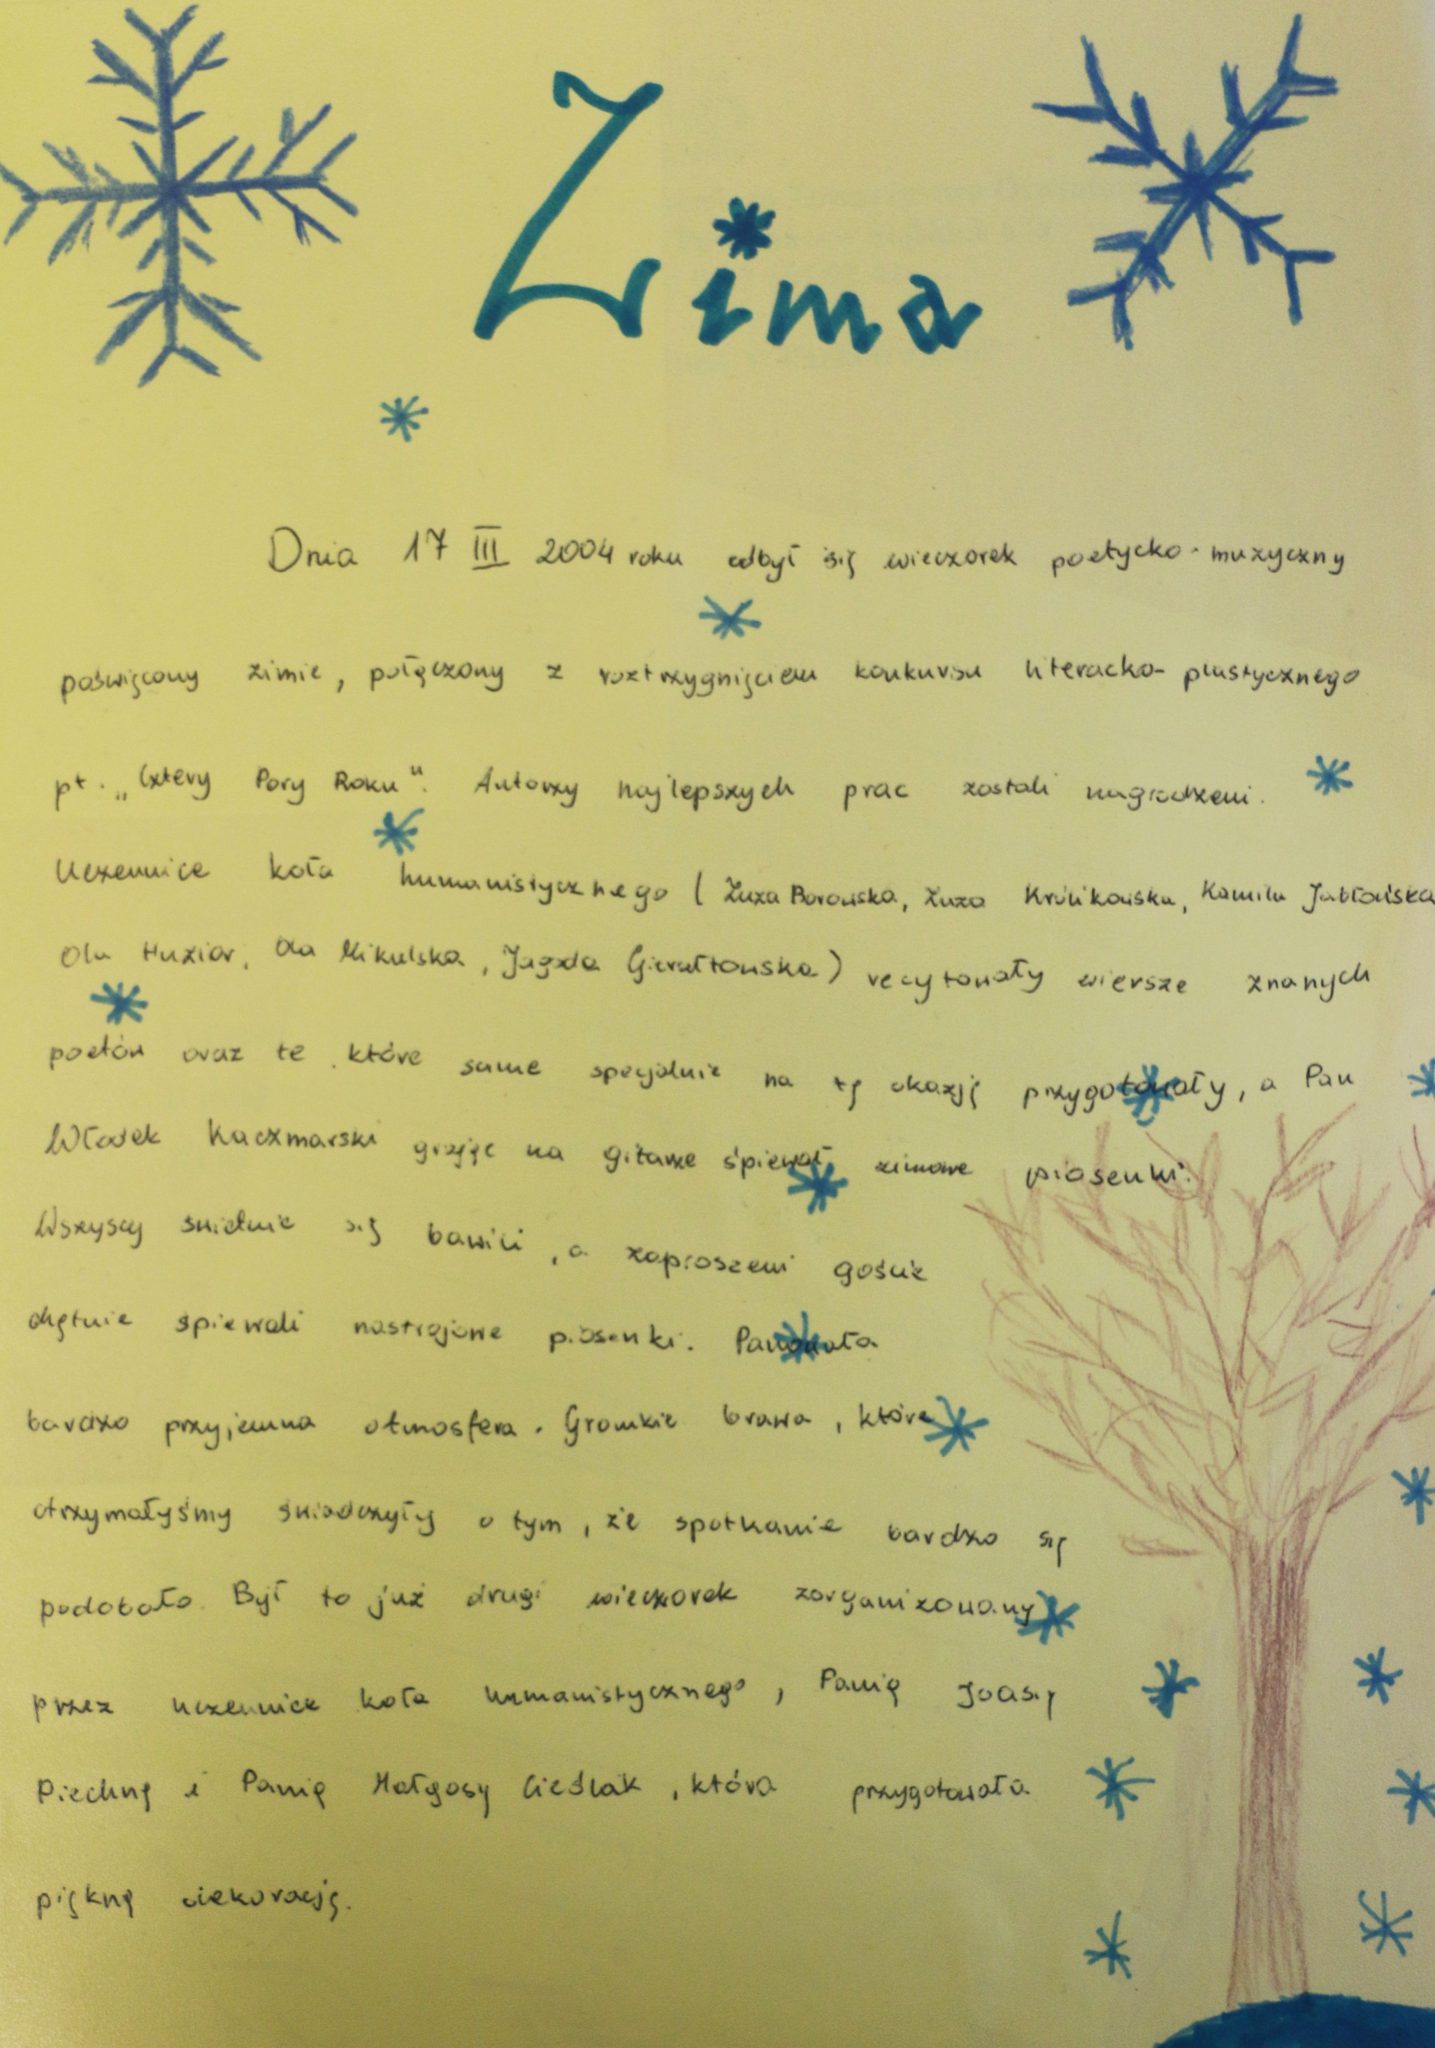 Zima
Dnia 17 III 2004 roku odbył się wieczorek poetycko-muzyczny
poświęcony zimie, połączony z roztrzygnięciem konkursu literacko-plastycznego
pt. „Cztery Pory Roku". Autorzy najlepszych prac zostali nagrodzeni.
Uczennice koła humanistycznego (Zuza Borowska, Zuza Królikowska, Kamila Jabłońska
Ola Huziar, Ola Mikulska, Jagoda Gierałtowska) recytowały wiersze znanych
poetów oraz te, które same specjalnie na tę okazję przygotowały, a Pan
Włodek Kaczmarski grając na gitarze śpiewał zimowe piosenki.
Wszyscy świetnie się bawili, a zaproszeni goście
chętnie śpiewali nastrojowe piosenki. Panowała
bardzo przyjemna atmosfera. Gromkie brawa, które
otrzymałyśmy świadczyły o tym, że spotkanie bardzo się
podobało. Był to już drugi wieczorek zorganizowany
przez uczennice koła humanistycznego, Panią Joasię
Piechnę i Panią Małgosię Cieślak, która przygotowała
piękną dekorację.